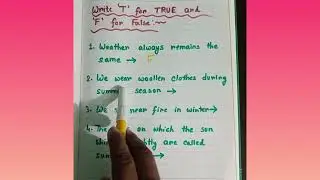 Write 'T' for TRUE and
'F' for False :-
1. Weather always remains the
same → F
2. We wear woollen clothes during
season →
3. We near fire in winter →
4. on which the son
are called